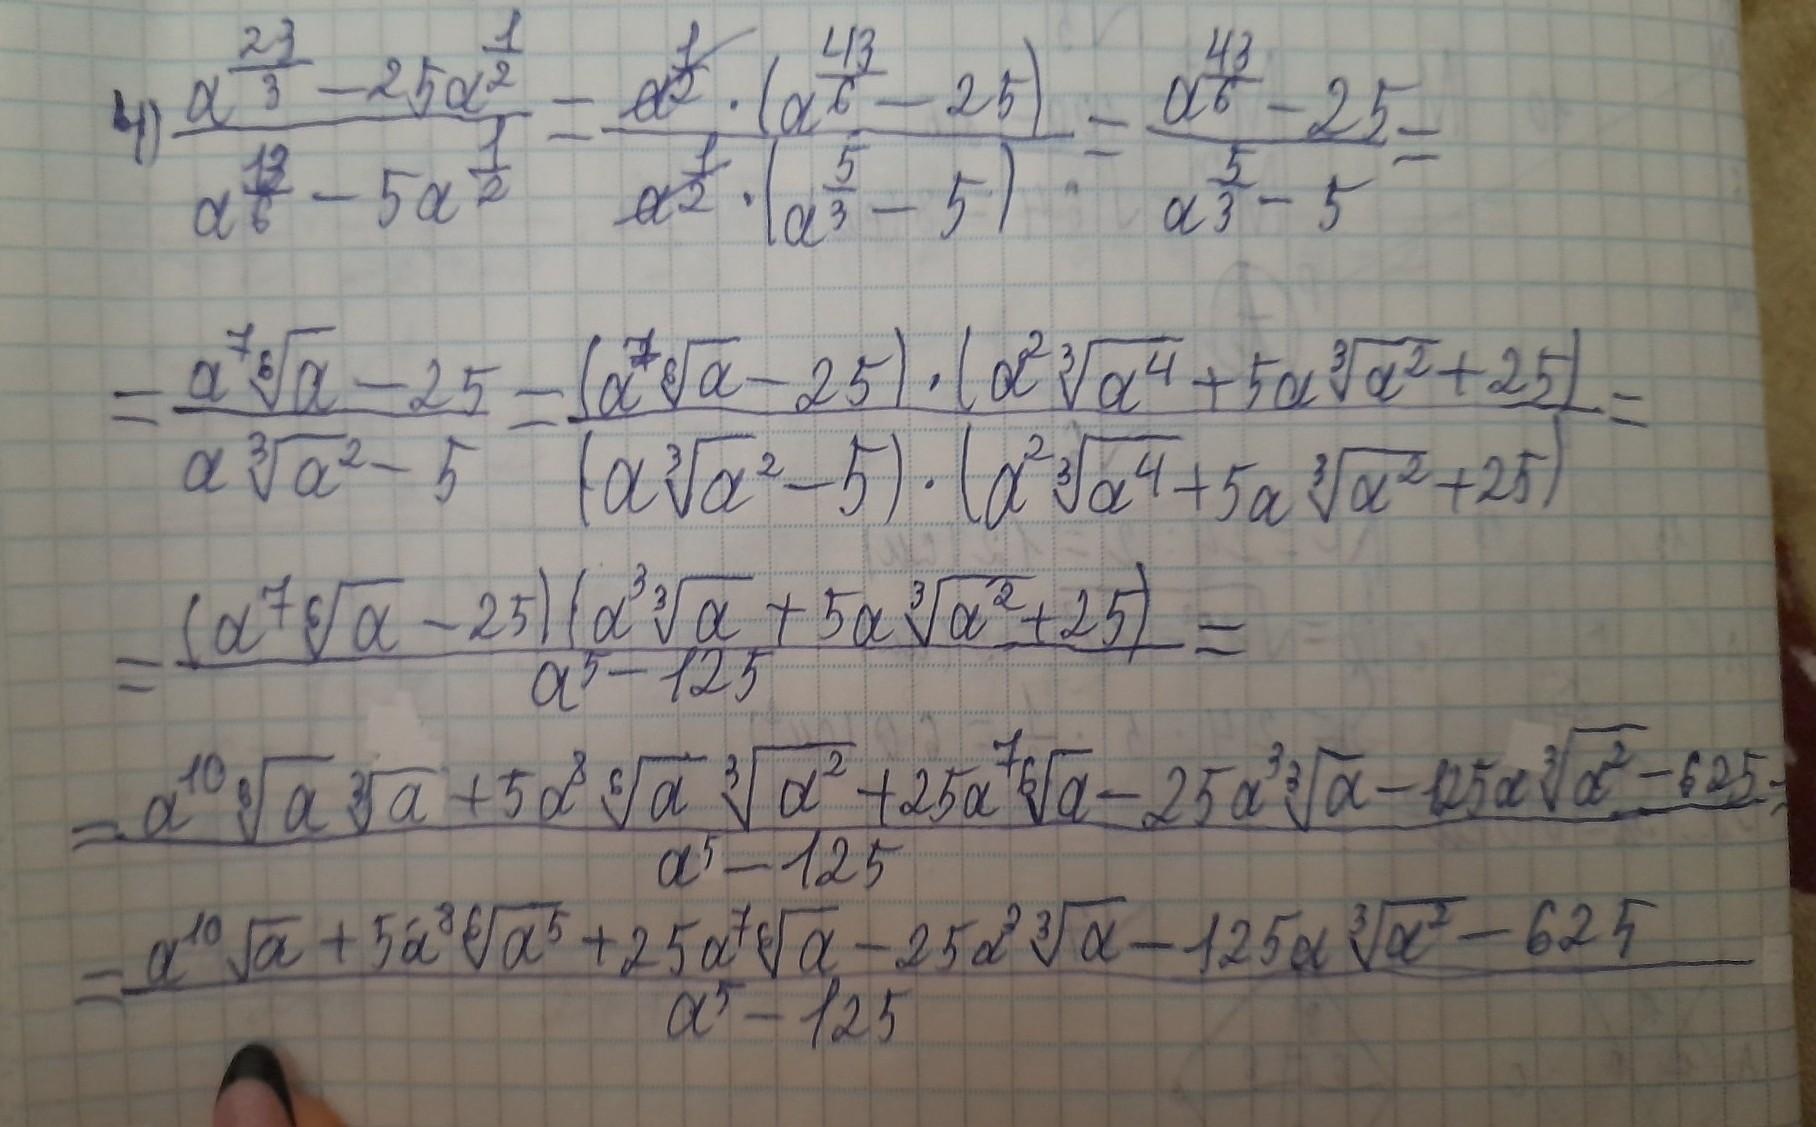 4) (a^(23/3) − 25a^(1/2))/(a^(13/6) − 5a^(1/2)) = (a^(1/2) · (a^(43/6) − 25))/(a^(1/2) · (a^(5/3) − 5)) = (a^(43/6) − 25)/(a^(5/3) − 5) =
= (a⁷ ⁶√a − 25)/(a ³√a² − 5) = ((a⁷ ⁶√a − 25) · (a² ³√a⁴ + 5a ³√a² + 25))/((a ³√a² − 5) · (a² ³√a⁴ + 5a ³√a² + 25)) =
= ((a⁷ ⁶√a − 25)(a³ ³√a + 5a ³√a² + 25))/(a⁵ − 125) =
= (a¹⁰ ⁶√a ³√a + 5a⁸ ⁶√a ³√a² + 25a⁷ ⁶√a − 25a³ ³√a − 125a ³√a² − 625)/(a⁵ − 125) =
= (a¹⁰ √a + 5a⁸ ⁶√a⁵ + 25a⁷ ⁶√a − 25a³ ³√a − 125a ³√a² − 625)/(a⁵ − 125)